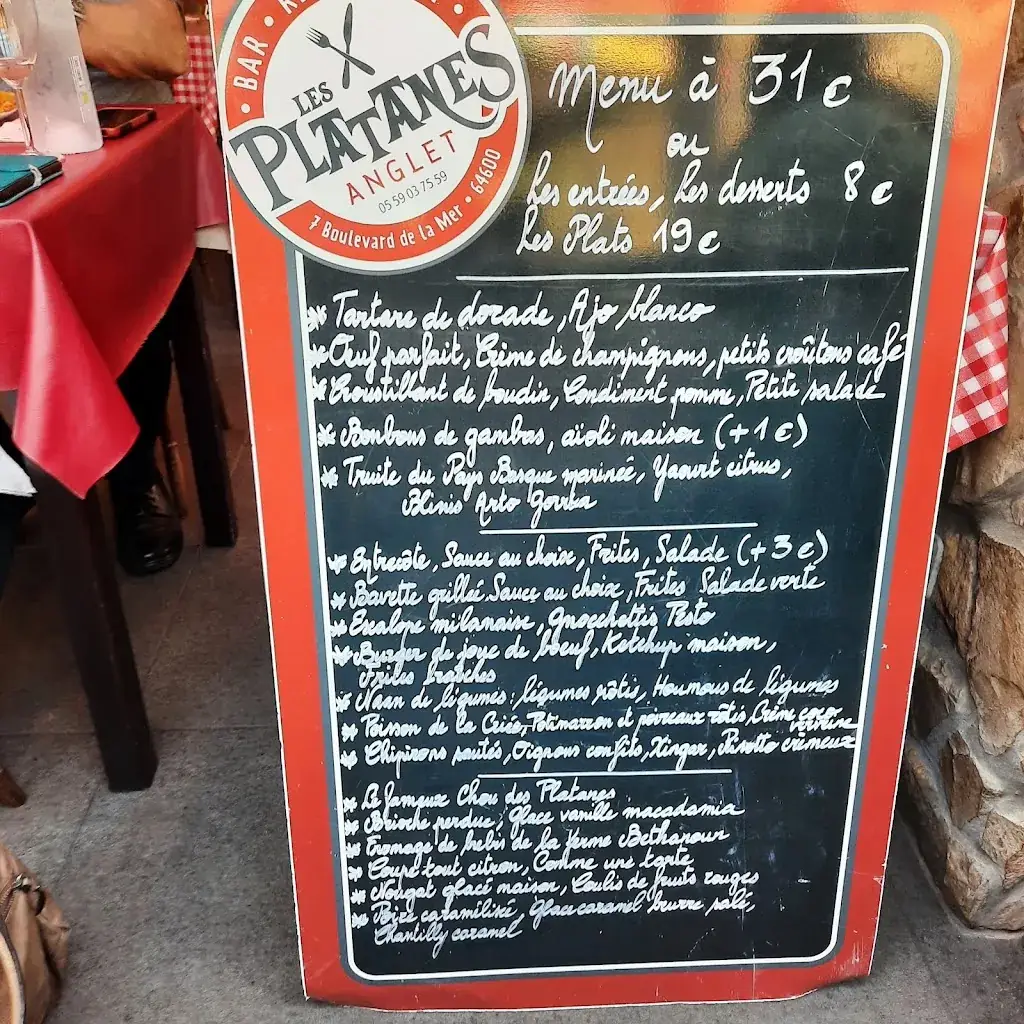 BAR •
LES
PLATANES
ANGLET
05 59 03 75 59
7 Boulevard de la Mer • 64600
Menu à 31 €
ou
Les entrées, Les desserts 8 €
Les Plats 19 €
* Tartare de dorade, Ajo blanco
* Œuf parfait, Crème de champignons, petits croûtons café
* Croustillant de boudin, Condiment pomme, Petite salade
* Bonbons de gambas, aïoli maison (+1 €)
* Truite du Pays Basque marinée, Yaourt citrus,
Blinis Arto Gorria
* Entrecôte, Sauce au choix, Frites, Salade (+3 €)
* Bavette grillée Sauce au choix, Frites Salade verte
* Escalope milanaise, gnocchettis Pesto
* Burger de joue de bœuf, Ketchup maison,
Frites fraîches
* Naan de légumes : légumes rôtis, Houmous de légumes
* Poisson de la Criée, Potimarron et poireaux rôtis, Crème coco
* Chipirons sautés, Oignons confits, Xingar, Risotto crémeux
* Le fameux Chou des Platanes
* Brioche perdue, glace vanille macadamia
* Fromage de brebis de la ferme Bethanoun
* Coupe tout citron, Comme une tarte
* Nougat glacé maison, Coulis de fruits rouges
* Poire caramélisée, Glace caramel beurre salé,
Chantilly caramel